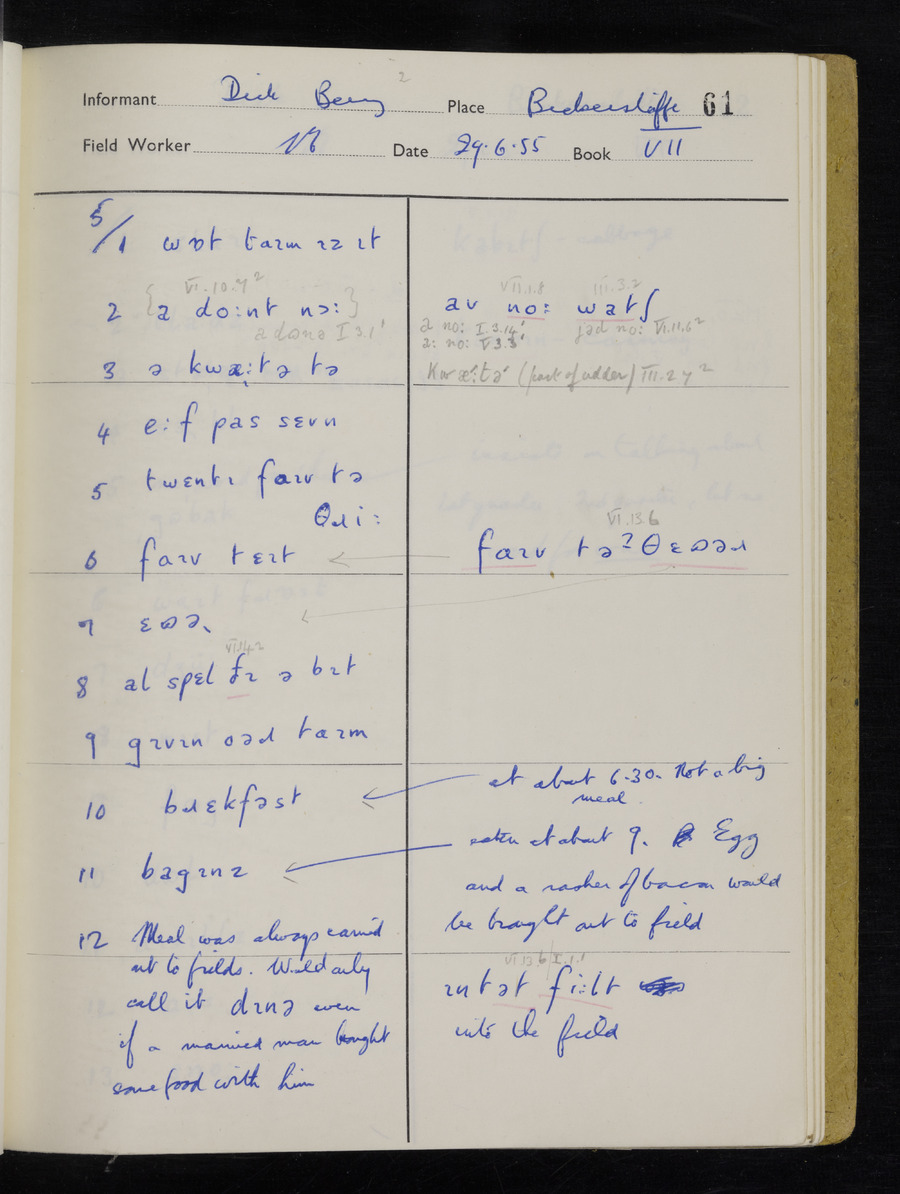 2
Informant Dick Berry Place Bickerstaffe 61
Field Worker Date 29.6.55 Book VII
5/1 wɒt taɪm ɪz ɪt
VI.10.7² VII.1.8 III.3.2
2 {a do:nt nɔ:} av no: watʃ
a dənə I 3.1' a no: I.3.14' jəd no: VI.11.6²
a: no: V 3.3'
3 ə kwæ:tə tə kwæ:tə (part of udder) III.2 7²
4 e:f pas sɛvn
5 twentɪ faɪv tə
θɹi:
VI.13.6
6 faɪv tɛɪt faɪv təʔ θɛʊəɹ
7 ɛʊə
VI.14.2
8 al spɛl fɪ ə bɪt
9 gɪvɪn oəɹ taɪm
10 bɹɛkfəst at about 6.30. Not a big
meal.
11 bagɪnz eaten at about 9. Egg
and a rasher of bacon would
be brought out to field
12 Meal was always carried
out to fields. Would only
call it dɪnə even
if a married man brought
some food with him
VI 13.6 I.1.1
ɪntət fi:lt
into the field